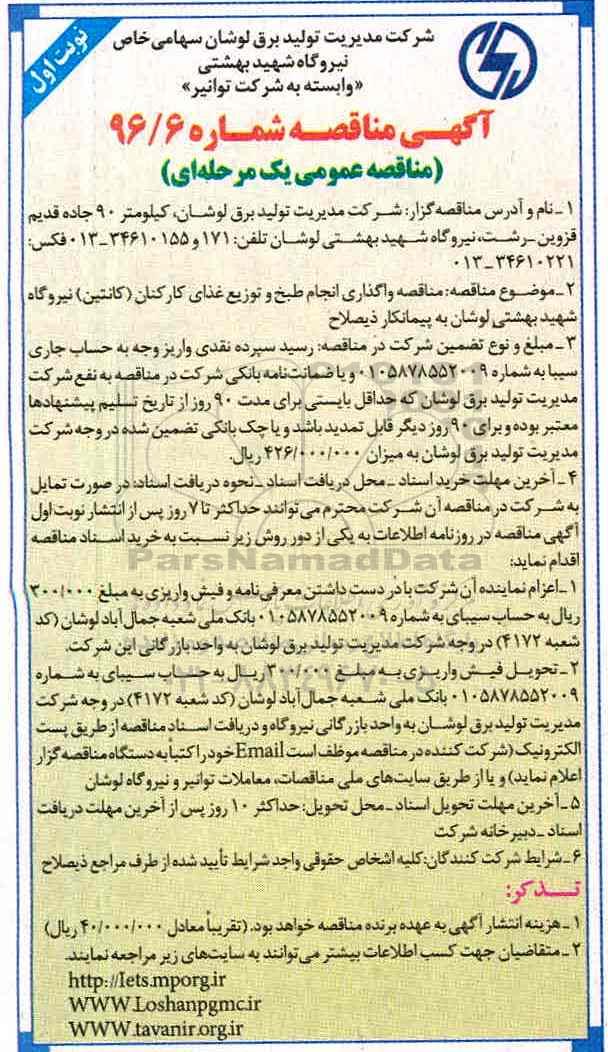 نوبت اول
شرکت مدیریت تولید برق لوشان سهامی خاص
نیروگاه شهید بهشتی
«وابسته به شرکت توانیر»
آگهی مناقصه شماره ۹۶/۶
(مناقصه عمومی یک مرحله‌ای)
۱ـ نام و آدرس مناقصه‌گزار: شرکت مدیریت تولید برق لوشان، کیلومتر ۹۰ جاده قدیم
قزوین ـ رشت، نیروگاه شهید بهشتی لوشان تلفن: ۱۷۱ و ۳۴۶۱۰۱۵۵ـ۰۱۳ فکس:
۳۴۶۱۰۲۲۱ـ۰۱۳
۲ـ موضوع مناقصه: مناقصه واگذاری انجام طبخ و توزیع غذای کارکنان (کانتین) نیروگاه
شهید بهشتی لوشان به پیمانکار ذیصلاح
۳ـ مبلغ و نوع تضمین شرکت در مناقصه: رسید سپرده نقدی واریز وجه به حساب جاری
سیبا به شماره ۰۱۰۵۸۷۸۵۵۲۰۰۹ و یا ضمانت‌نامه بانکی شرکت در مناقصه به نفع شرکت
مدیریت تولید برق لوشان که حداقل بایستی برای مدت ۹۰ روز از تاریخ تسلیم پیشنهادها
معتبر بوده و برای ۹۰ روز دیگر قابل تمدید باشد و یا چک بانکی تضمین شده در وجه شرکت
مدیریت تولید برق لوشان به میزان ۴۲۶/۰۰۰/۰۰۰ ریال.
۴ـ آخرین مهلت خرید اسناد ـ محل دریافت اسناد ـ نحوه دریافت اسناد: در صورت تمایل
به شرکت در مناقصه آن شرکت محترم می‌توانند حداکثر تا ۷ روز پس از انتشار نوبت اول
آگهی مناقصه در روزنامه اطلاعات به یکی از دو روش زیر نسبت به خرید اسناد مناقصه
اقدام نماید:
۱ـ اعزام نماینده آن شرکت با در دست داشتن معرفی‌نامه و فیش واریزی به مبلغ ۳۰۰/۰۰۰
ریال به حساب سیبای به شماره ۰۱۰۵۸۷۸۵۵۲۰۰۹ بانک ملی شعبه جمال‌آباد لوشان (کد
شعبه ۴۱۷۲) در وجه شرکت مدیریت تولید برق لوشان به واحد بازرگانی این شرکت.
۲ـ تحویل فیش واریزی به مبلغ ۳۰۰/۰۰۰ ریال به حساب سیبای به شماره
۰۱۰۵۸۷۸۵۵۲۰۰۹ بانک ملی شعبه جمال‌آباد لوشان (کد شعبه ۴۱۷۲) در وجه شرکت
مدیریت تولید برق لوشان به واحد بازرگانی نیروگاه و دریافت اسناد مناقصه از طریق پست
الکترونیک (شرکت کننده در مناقصه موظف است Email خود را کتباً به دستگاه مناقصه‌گزار
اعلام نماید) و یا از طریق سایت‌های ملی مناقصات، معاملات توانیر و نیروگاه لوشان
۵ـ آخرین مهلت تحویل اسناد ـ محل تحویل: حداکثر ۱۰ روز پس از آخرین مهلت دریافت
اسناد ـ دبیرخانه شرکت
۶ـ شرایط شرکت کنندگان: کلیه اشخاص حقوقی واجد شرایط تأیید شده از طرف مراجع ذیصلاح
تذکر:
۱ـ هزینه انتشار آگهی به عهده برنده مناقصه خواهد بود. (تقریباً معادل ۴۰/۰۰۰/۰۰۰ ریال)
۲ـ متقاضیان جهت کسب اطلاعات بیشتر می‌توانند به سایت‌های زیر مراجعه نمایند.
http://Iets.mporg.ir
WWW.Loshanpgmc.ir
WWW.tavanir.org.ir
ParsNamadData